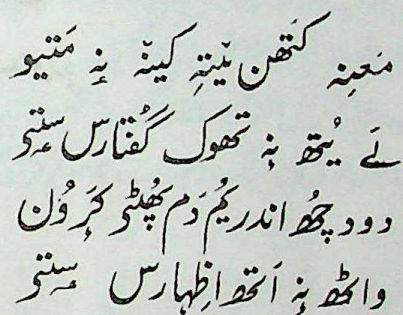 معنہِ کَتھن ییٚتہِ کینٛہ نہٕ مَتیو
لَے یُتھ نہٕ تھوک گُفتارس سٟتۍ
دود چھُ اندریُم دَم پھُٹۍ کَرٕ وُن
واٹھ نہٕ اَتھ اِظہارس سٟتۍ